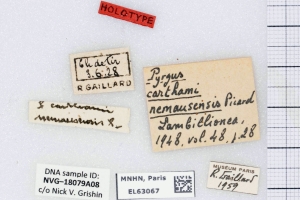 HOLOTYPE
3.6.28
R. GAILLARD
Pyrgus
carthami
nemausensis Picard
Lambillionea,
1948, vol. 48, p. 28
P. carthami
nemausensis P.
DNA sample ID:
NVG-18079A08
c/o Nick V. Grishin
MNHN, Paris
EL63067
MUSÉUM PARIS
R. Gaillard
1959